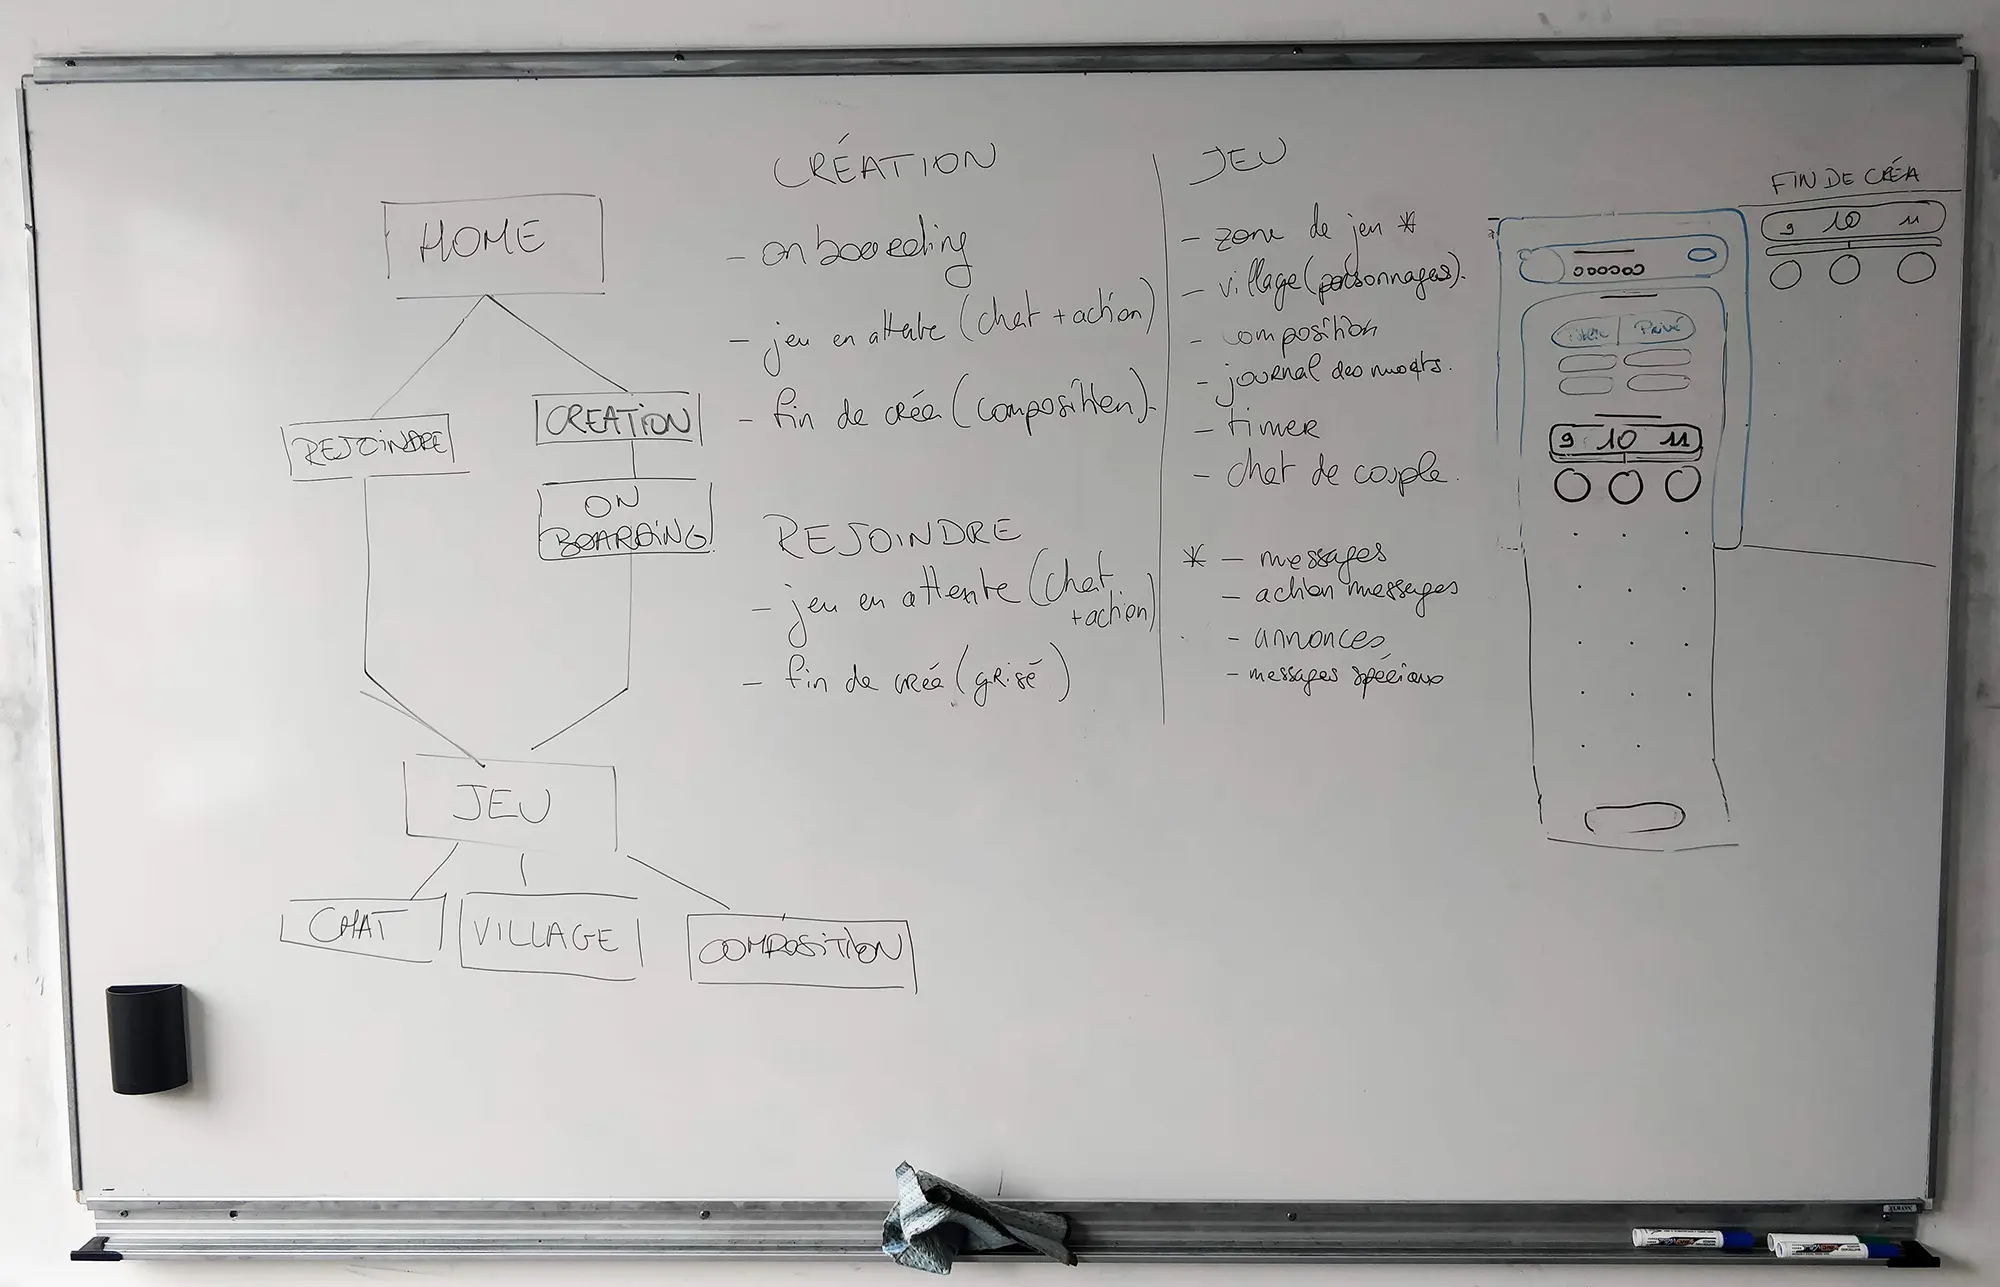 HOME
REJOINDRE
CREATION
ON
BOARDING
JEU
CHAT
VILLAGE
COMPOSITION
CRÉATION
- onboarding
- jeu en attente (chat + action)
- fin de créa (composition).
REJOINDRE
- jeu en attente (chat
+ action)
- fin de créa (grisé)
JEU
- zone de jeu *
- village (personnages).
- composition
- journal des morts.
- timer
- chat de couple.
* - messages
- action messages
- annonces
- messages spéciaux
Privé
9 10 11
FIN DE CRÉA
9 10 11